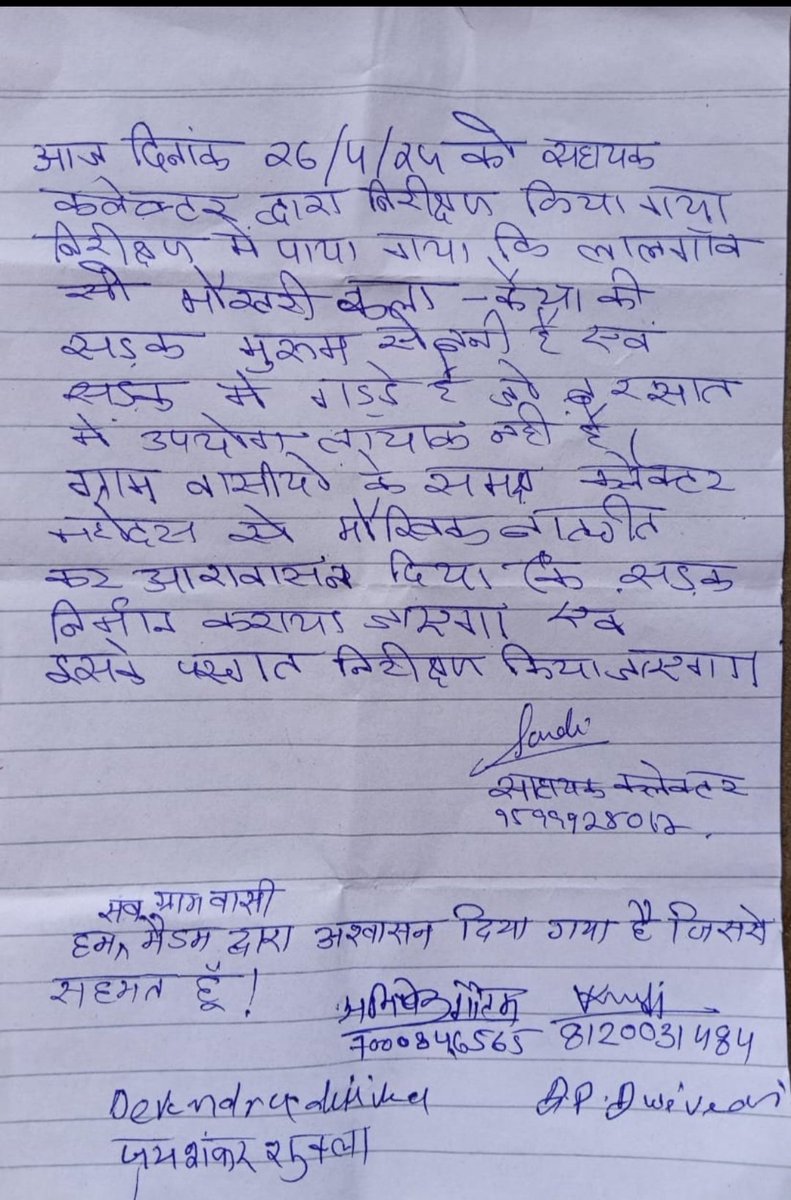 आज दिनांक २६/५/२५ को सहायक
कलेक्टर द्वारा निरीक्षण किया गया
निरीक्षण मे पाया गया कि लालगॉव
सो भौखरी कला - कैथा की
सड़क मुरूम से बनी है एवं
सड़क में गड्डे है जो बरसात
मे उपयोग लायाक नही है।
ग्राम वासीयो के समक्ष कलेक्टर
महोदय से मौखिक बातचीत
कर आशवासन दिया कि सड़क
निर्मान कराया जाएगा एव
इसके पश्चात निरीक्षण किया जाएगा।
साहायक कलेक्टर
सब ग्राम वासी
हम मैडम द्वारा अश्वासन दिया गया है जिससे
सहमत हूँ!
अभिषेक गौतम
7000846565 8120031484
Devendra dwivedi D.P. Dwivedi
जयशंकर शुक्ला